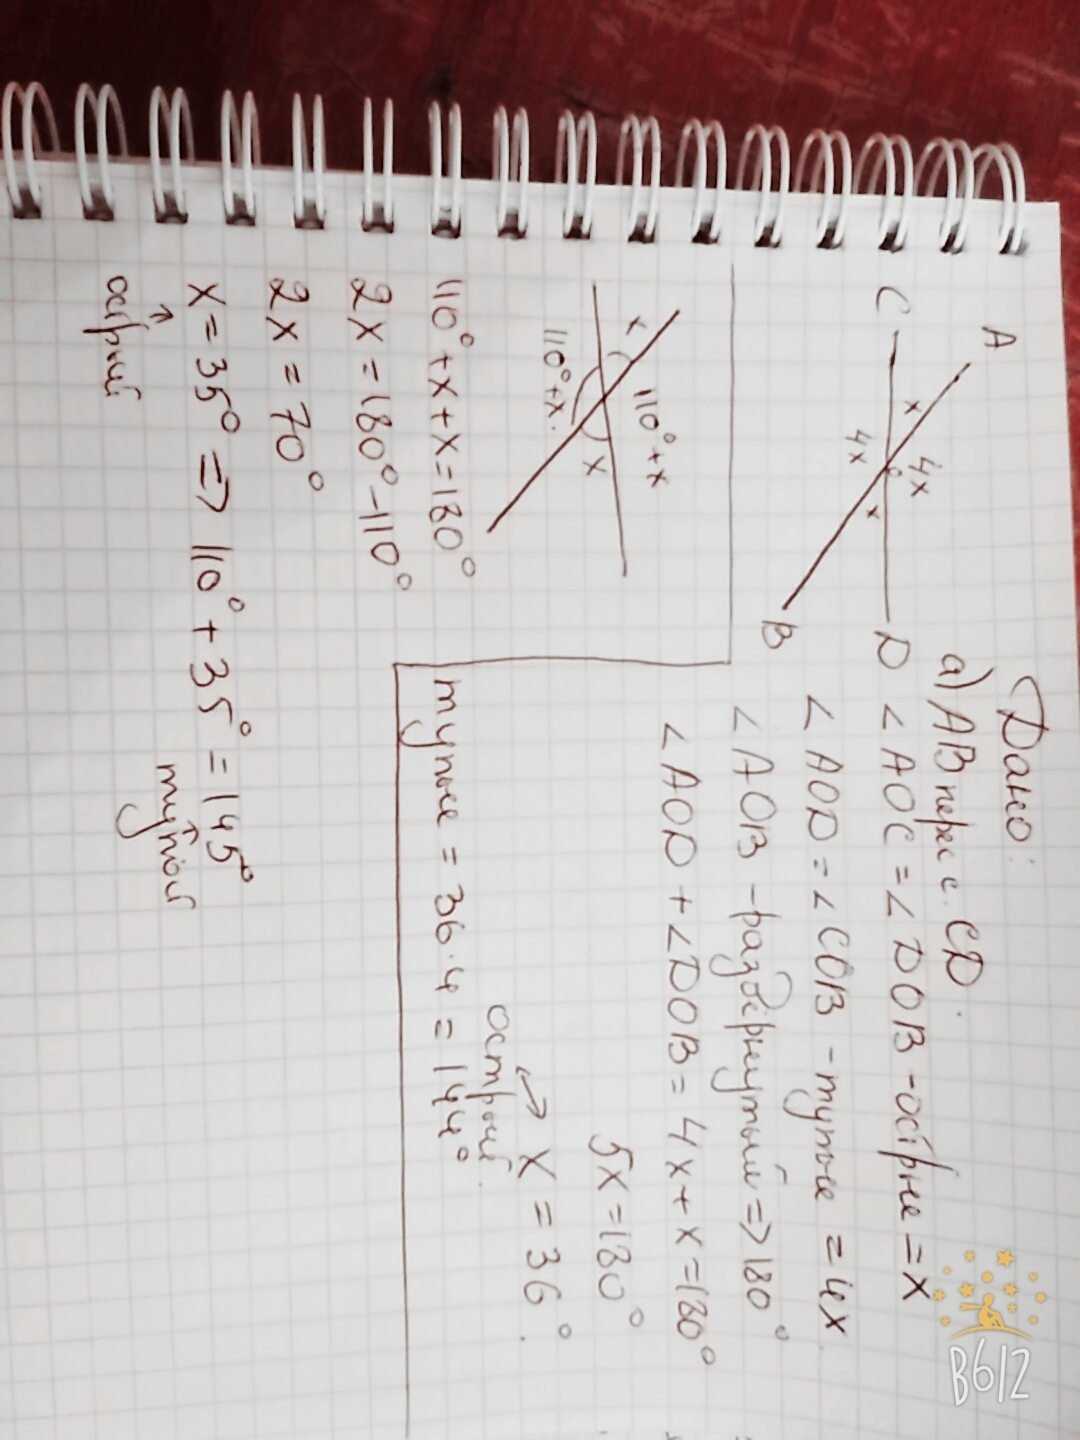 Дано:
а) АВ перес. CD.
∠AOC = ∠DOB - острые = x
∠AOD = ∠COB - тупые = 4x
∠AOB - развёрнутый => 180°
∠AOD + ∠DOB = 4x + x = 180°
5x = 180°
x = 36°.
острый.
тупые = 36·4 = 144°
A
C
D
B
O
x
4x
4x
x
x
110°+x
110°+x.
x
110° + x + x = 180°
2x = 180° - 110°
2x = 70°
x = 35° => 110° + 35° = 145°
острый
тупой
B612